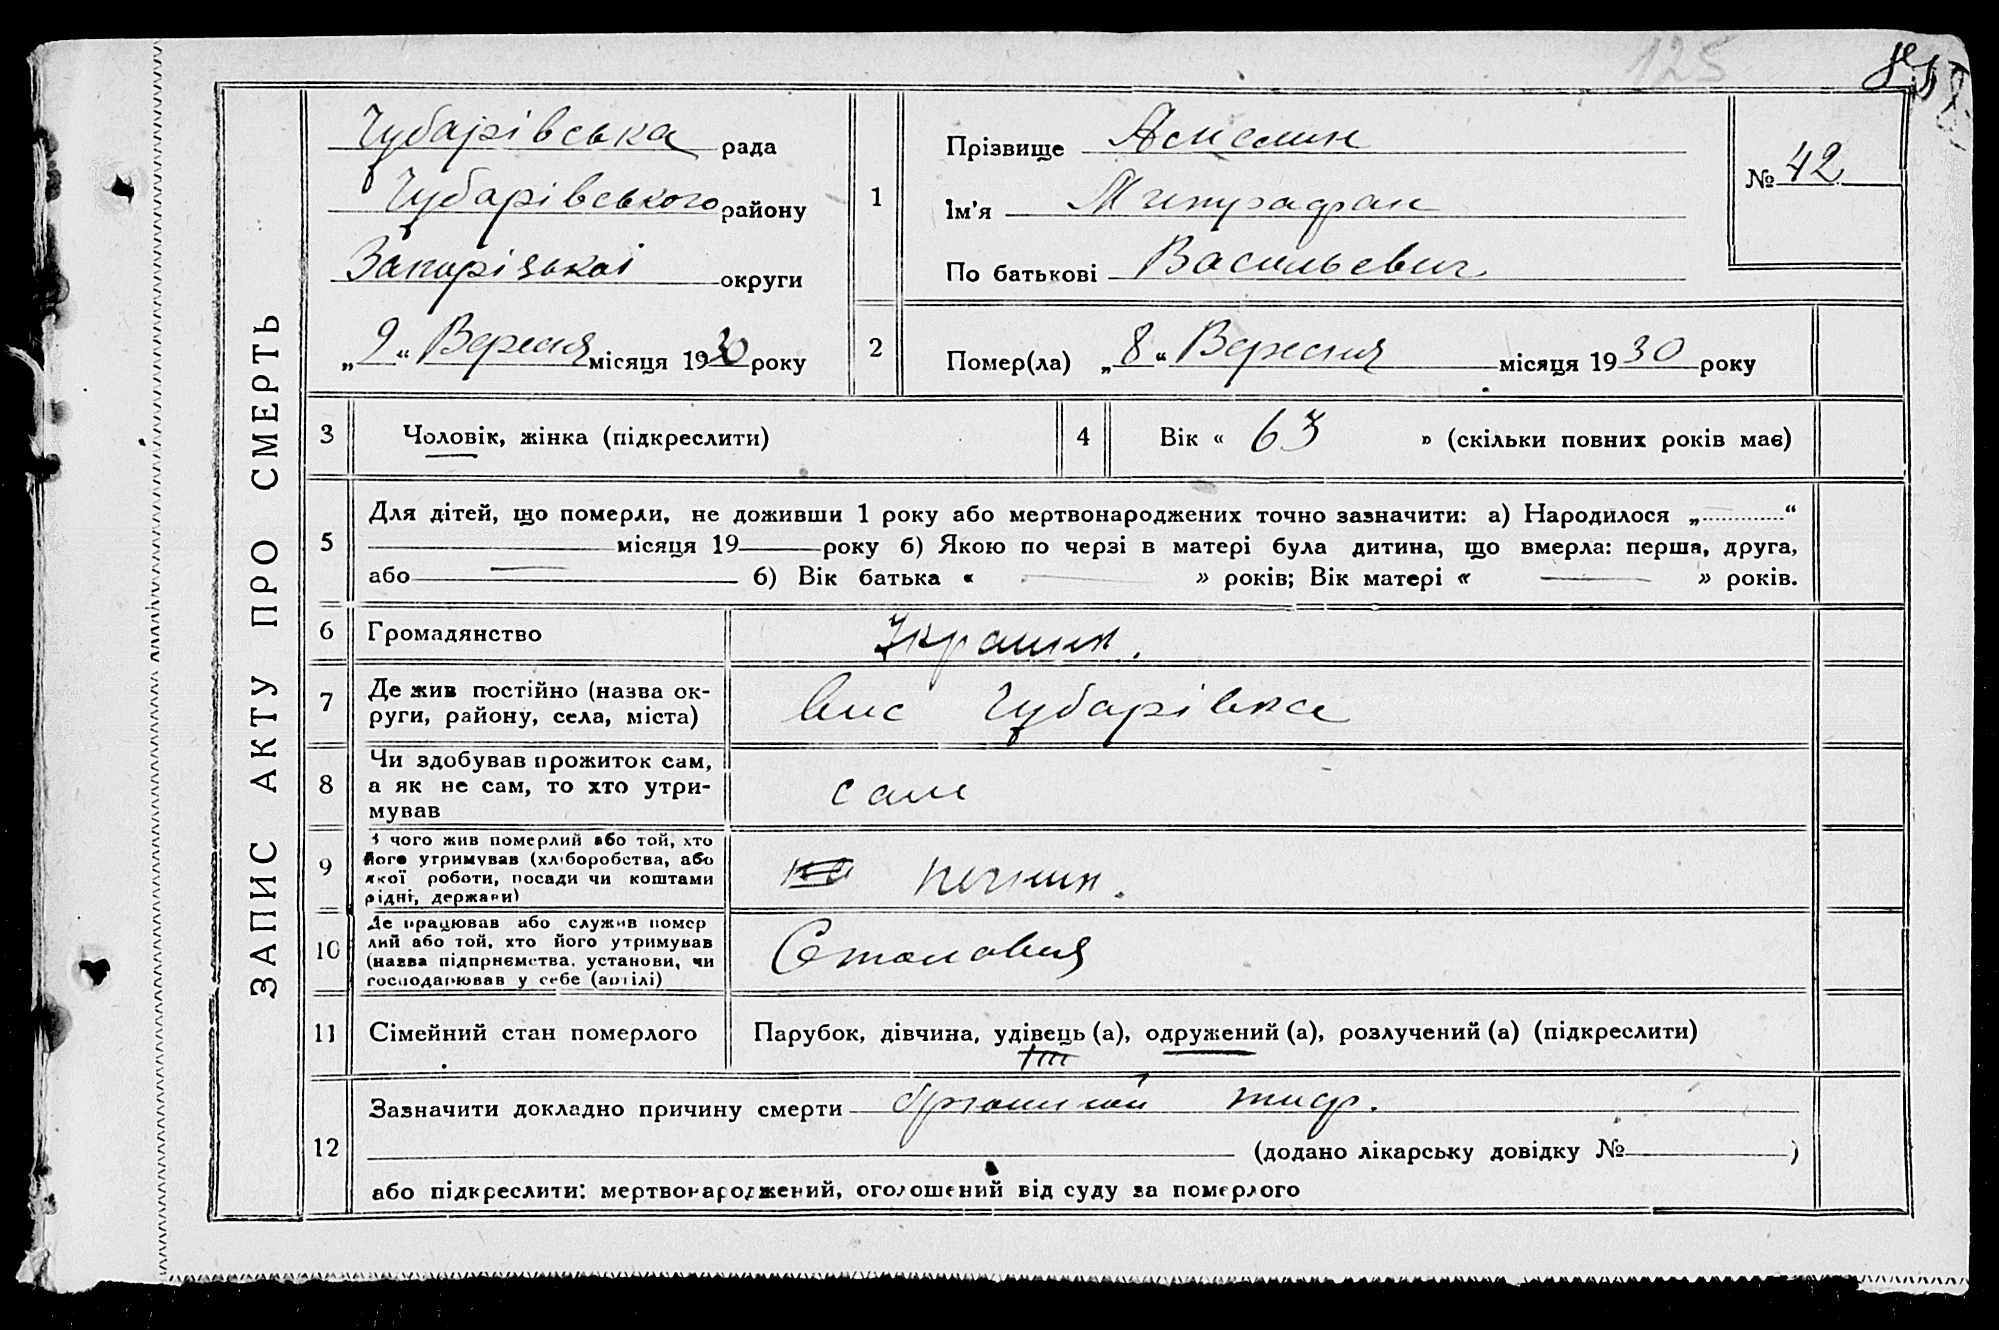 125
ЗАПИС АКТУ ПРО СМЕРТЬ
Чубарівська рада
Чубарівського району
Запорізької округи
„9“ Вересня місяця 1930 року
1
Прізвище
Ім'я
По батькові Васильевич
№ 42
2
Помер(ла) „8“ Вересня місяця 1930 року
3
Чоловік, жінка (підкреслити)
4
Вік « 63 » (скільки повних років має)
5
Для дітей, що померли, не доживши 1 року або мертвонароджених точно зазначити: а) Народилося „ “
місяця 19 року б) Якою по черзі в матері була дитина, що вмерла: перша, друга,
або б) Вік батька « » років; Вік матері « » років.
6
Громадянство
7
Де жив постійно (назва ок-
руги, району, села, міста)
Чубарівка
8
Чи здобував прожиток сам,
а як не сам, то хто утри-
мував
сам
9
З чого жив померлий або той, хто
його утримував (хліборобства, або
якої роботи, посади чи коштами
рідні, держави)
10
Де працював або служив помер
лий або той, хто його утримував
(назва підприємства, установи, чи
господарював у себе (артілі)
Столовия
11
Сімейний стан померлого
Парубок, дівчина, удівець (а), одружений (а), розлучений (а) (підкреслити)
12
Зазначити докладно причину смерти брюшной тиф.
(додано лікарську довідку № )
або підкреслити: мертвонароджений, оголошений від суду за померлого